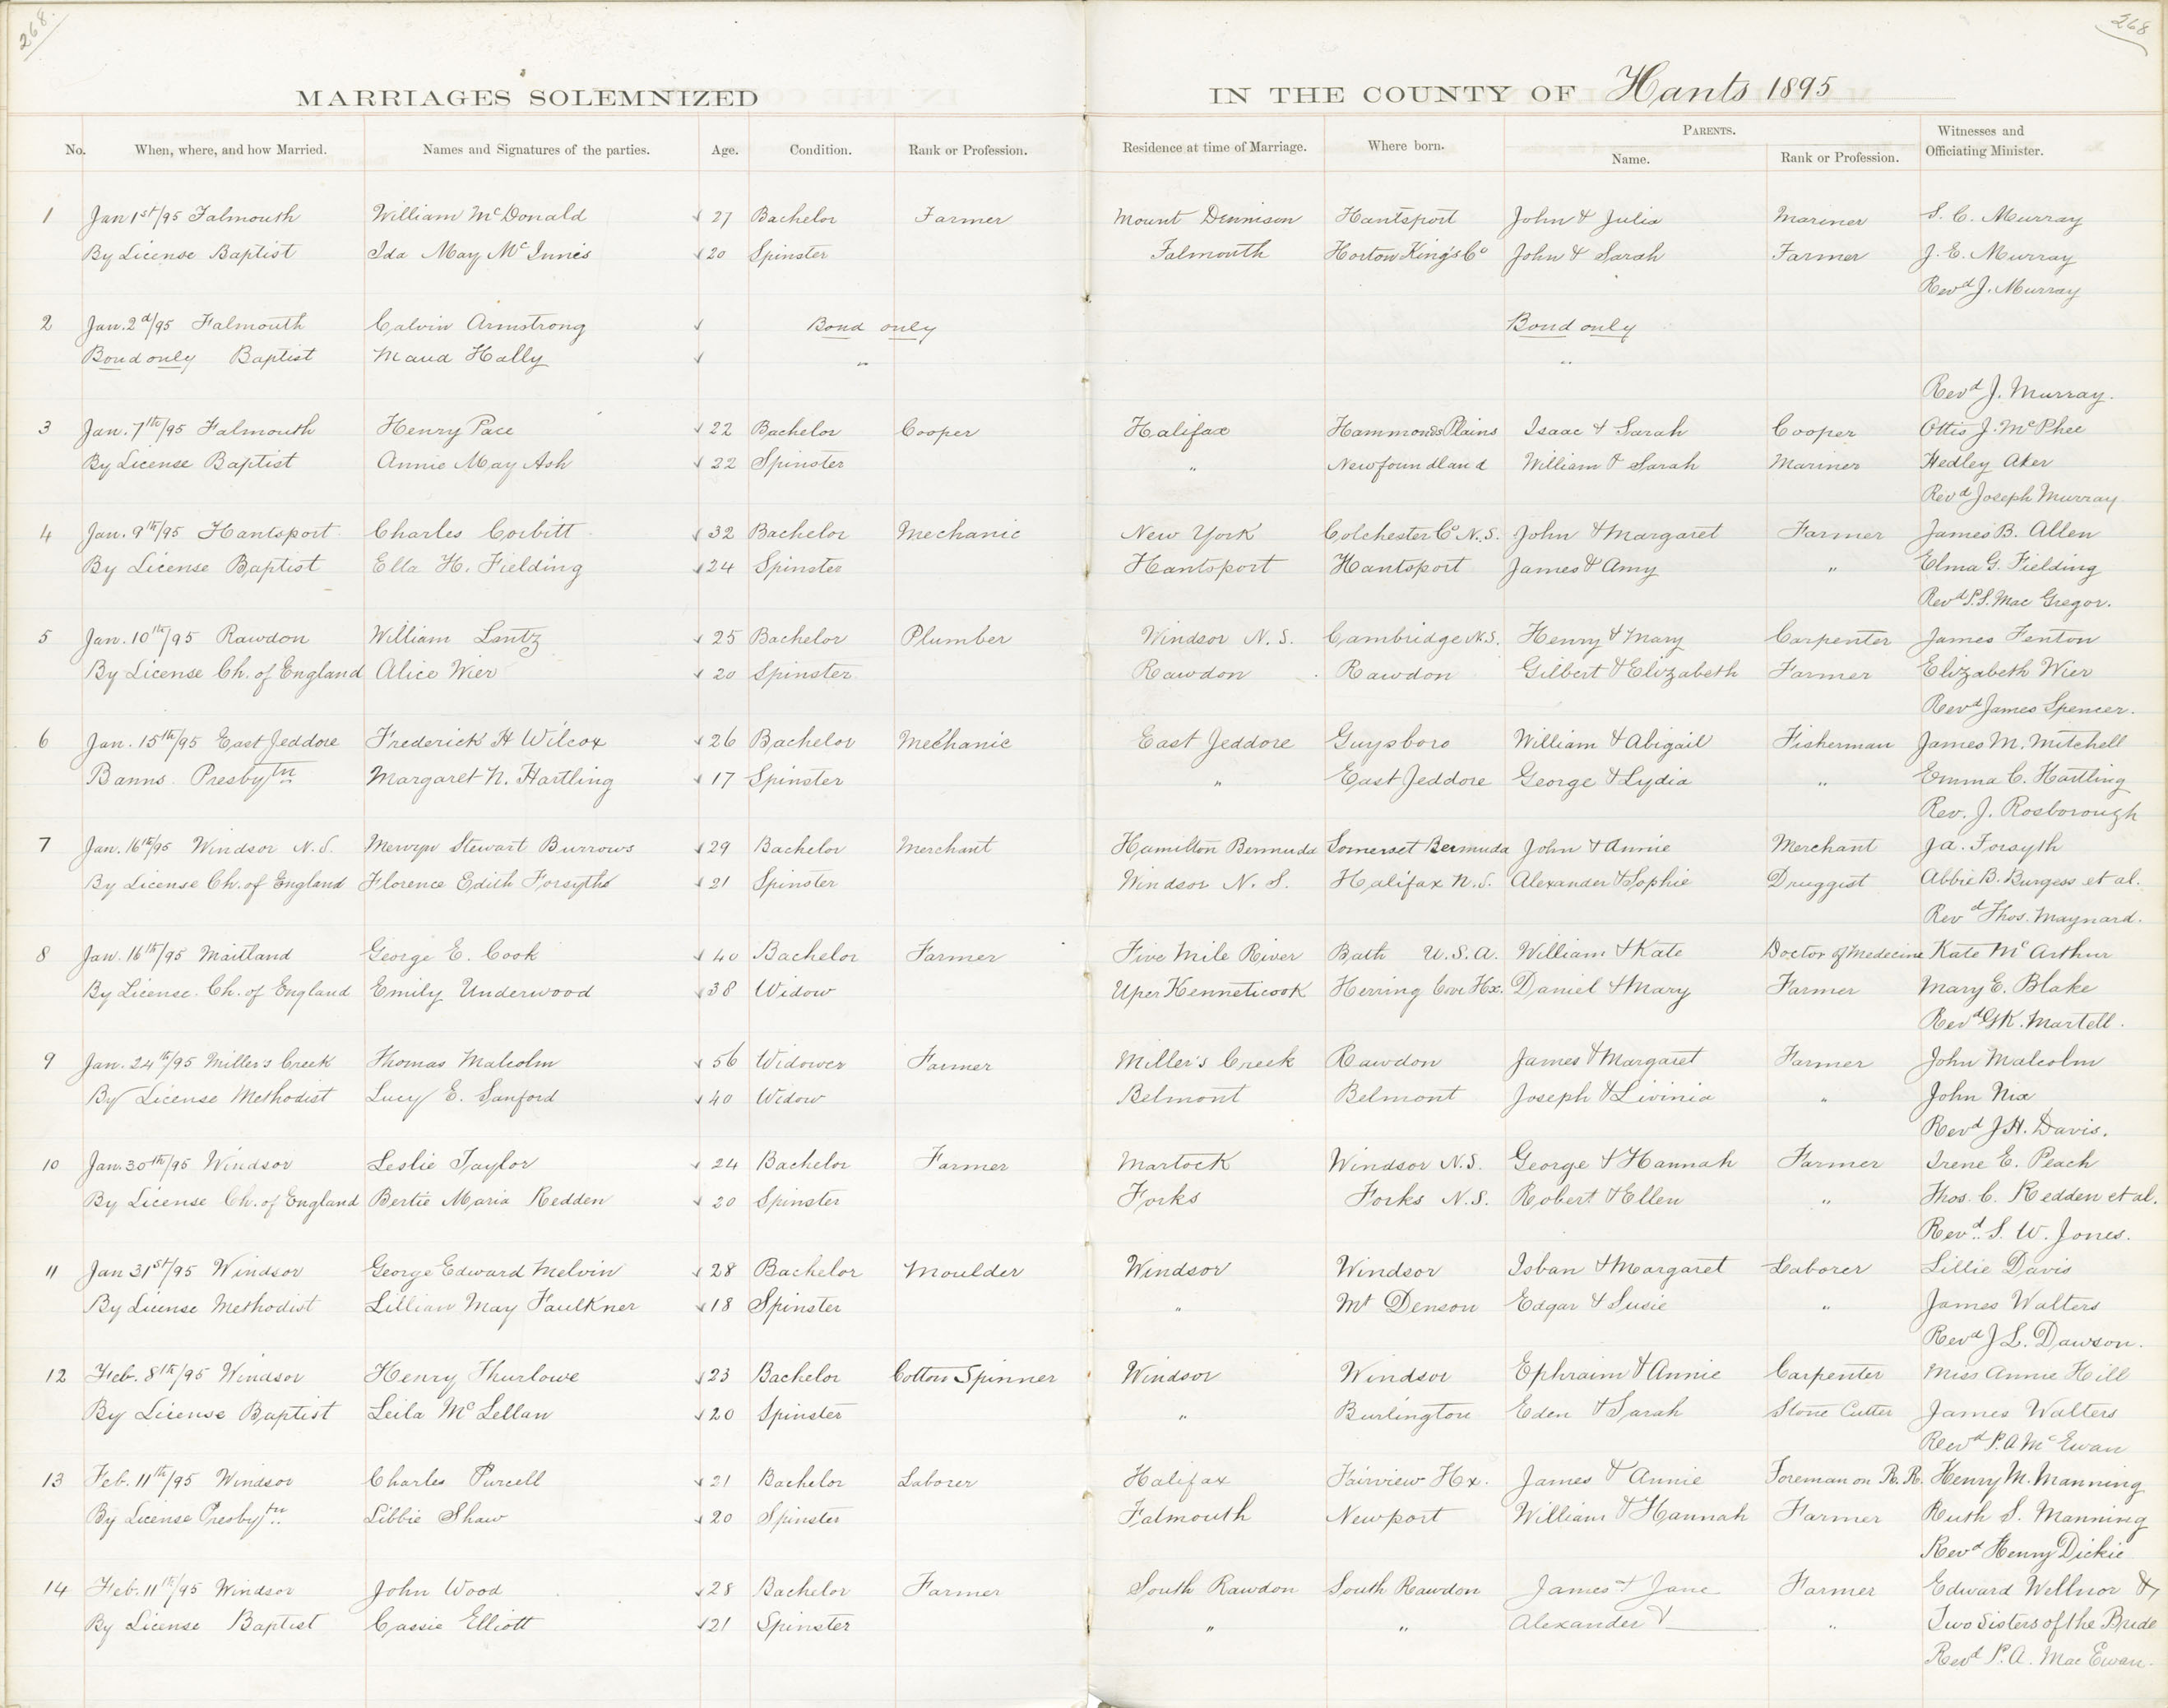 268.
268
MARRIAGES SOLEMNIZED IN THE COUNTY OF Hants 1895
No. When, where, and how Married. Names and Signatures of the parties. Age. Condition. Rank or Profession. Residence at time of Marriage. Where born. PARENTS. Name. Rank or Profession. Witnesses and Officiating Minister.
1 Jan 1st/95 Falmouth William McDonald √ 27 Bachelor Farmer Mount Dennison Hantsport John & Julia Mariner S. C. Murray
By License Baptist Ida May McInnis √ 20 Spinster Falmouth Horton King's Co John & Sarah Farmer J. E. Murray
Revd J. Murray
2 Jan. 2d/95 Falmouth Calvin Armstrong √ Bond only Bond only
Bond only Baptist Maud Hally √ " "
Revd J. Murray.
3 Jan. 7th/95 Falmouth Henry Pace √ 22 Bachelor Cooper Halifax Hammonds Plains Isaac & Sarah Cooper Ottis J. McPhee
By License Baptist Annie May Ash √ 22 Spinster " Newfoundland William & Sarah Mariner Hedley Aker
Revd Joseph Murray.
4 Jan. 9th/95 Hantsport Charles Corbitt √ 32 Bachelor Mechanic New York Colchester Co N.S. John & Margaret Farmer James B. Allen
By License Baptist Ella H. Fielding √ 24 Spinster Hantsport Hantsport James & Amy " Elma G. Fielding
Revd P.S. Mac Gregor.
5 Jan. 10th/95 Rawdon William Lantz √ 25 Bachelor Plumber Windsor N.S. Cambridge N.S. Henry & Mary Carpenter James Fenton
By License Ch. of England Alice Wier √ 20 Spinster Rawdon Rawdon Gilbert & Elizabeth Farmer Elizabeth Wier
Revd James Spencer.
6 Jan. 15th/95 East Jeddore Frederick H Wilcox √ 26 Bachelor Mechanic East Jeddore Guysboro William & Abigail Fisherman James M. Mitchell
Banns. Presbytn Margaret N. Hartling √ 17 Spinster " East Jeddore George & Lydia " Emma C. Hartling
Rev. J. Rosborough
7 Jan. 16th/95 Windsor N.S. Mervyn Stewart Burrows √ 29 Bachelor Merchant Hamilton Bermuda Somerset Bermuda John & Annie Merchant J a. Forsyth
By License Ch. of England Florence Edith Forsythe √ 21 Spinster Windsor N. S. Halifax N.S. Alexander & Sophie Druggist Abbie B. Burgess et al.
Revd Thos. Maynard.
8 Jan. 16th/95 Maitland George E. Cook √ 40 Bachelor Farmer Five Mile River Bath U.S.A. William & Kate Doctor of Medecine Kate McArthur
By License. Ch. of England Emily Underwood √ 38 Widow Uper Kennetcook Herring Cove Hx. Daniel & Mary Farmer Mary E. Blake
Revd GR. Martell.
9 Jan. 24th/95 Miller's Creek Thomas Malcolm √ 56 Widower Farmer Miller's Creek Rawdon James & Margaret Farmer John Malcolm
By License Methodist Lucy E. Sanford √ 40 Widow Belmont Belmont Joseph & Livinia " John Nix
Revd J H. Davis.
10 Jan. 30th/95 Windsor Leslie Taylor √ 24 Bachelor Farmer Martock Windsor N.S. George & Hannah Farmer Irene E. Peach
By License Ch. of England Bertie Maria Redden √ 20 Spinster Forks Forks N.S. Robert & Ellen " Thos. C. Redden et al.
Revd. S. W. Jones.
11 Jan 31st/95 Windsor George Edward Melvin √ 28 Bachelor Moulder Windsor Windsor Isban & Margaret Laborer Lillie Davis
By License Methodist Lillian May Faulkner √ 18 Spinster " Mt Denson Edgar & Susie " James Walters
Revd J L. Dawson.
12 Feb. 8th/95 Windsor Henry Thurlowe √ 23 Bachelor Cotton Spinner Windsor Windsor Ephraim & Annie Carpenter Miss Annie Hill
By License Baptist Leila McLellan √ 20 Spinster " Burlington Eden & Sarah Stone Cutter James Walters
Revd P.A McEwan
13 Feb. 11th/95 Windsor Charles Purcell √ 21 Bachelor Laborer Halifax Fairview Hx. James & Annie Foreman on R.R. Henry M. Manning
By License Presbytn Libbie Shaw √ 20 Spinster Falmouth Newport William & Hannah Farmer Ruth S. Manning
Revd Henry Dickie
14 Feb. 11th/95 Windsor John Wood √ 28 Bachelor Farmer South Rawdon South Rawdon James & Jane Farmer Edward Wellnor &
By License Baptist Cassie Elliott √ 21 Spinster " " Alexander & " Two Sisters of the Bride
Revd P. A. Mac Ewan.